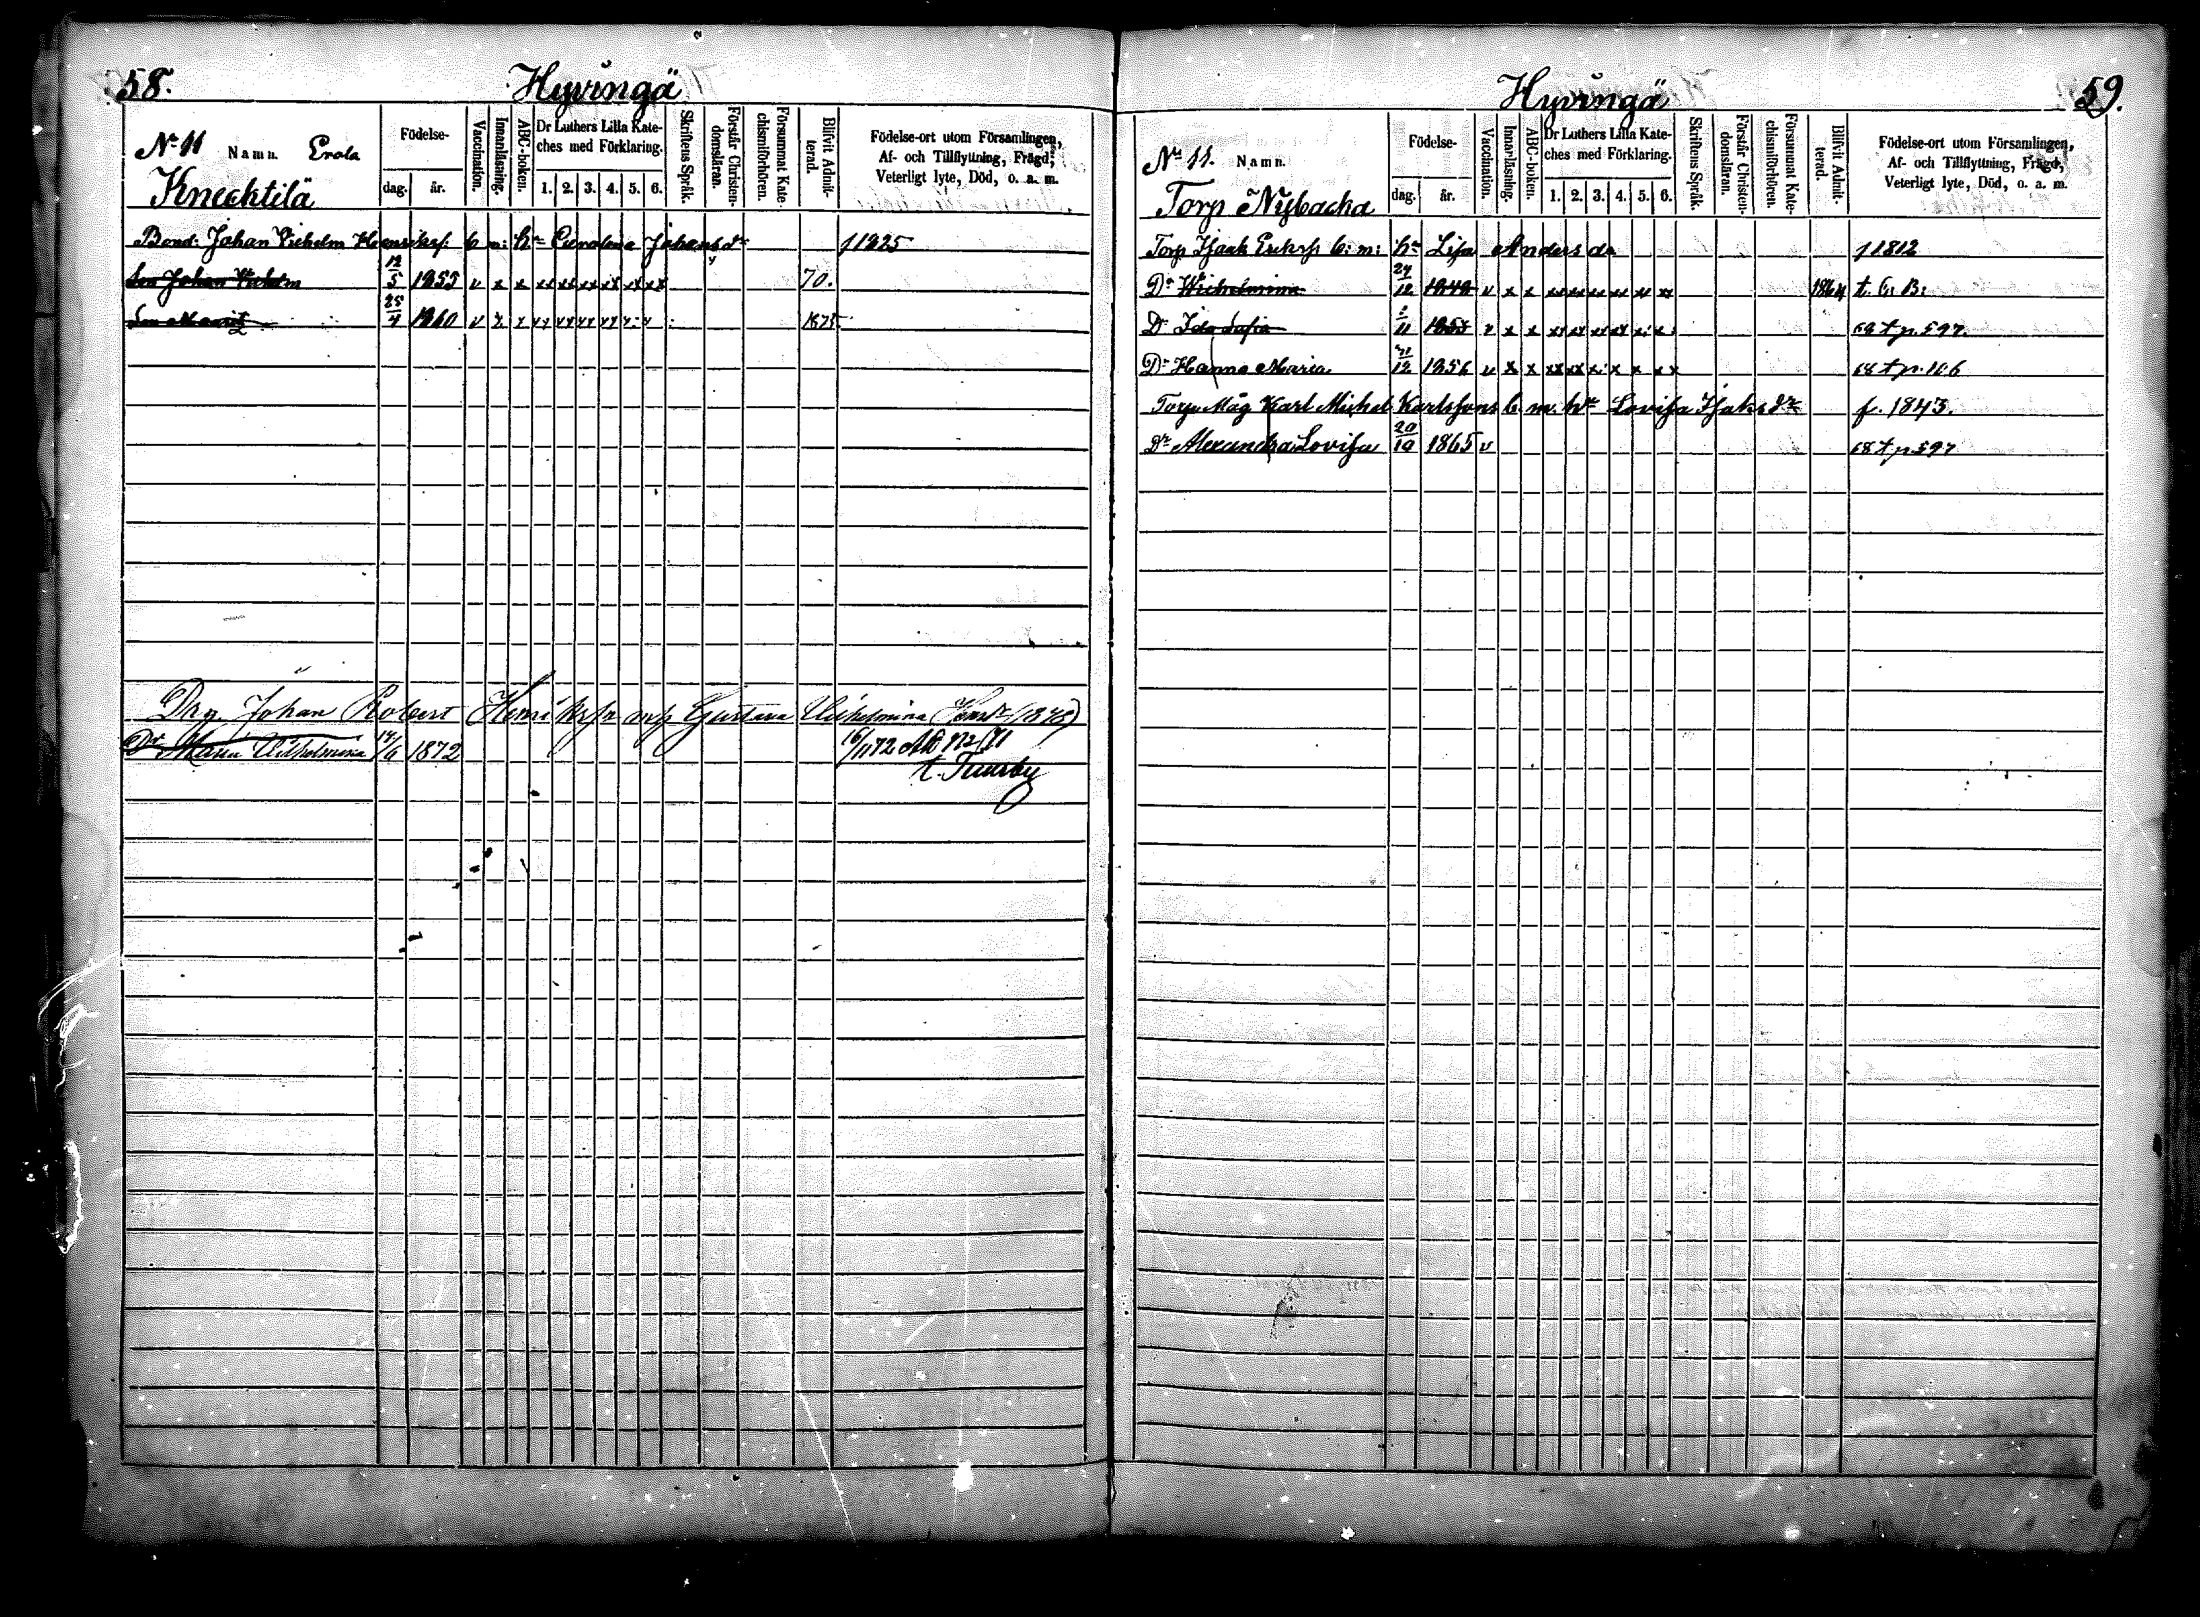 58.
Hyvingä
N° 11 Namn. Erola
Knecktilä
Födelse-
dag. år.
Vaccination.
Innanläsning.
ABC-boken.
Dr Luthers Lilla Kate-
ches med Förklaring.
1. 2. 3. 4. 5. 6.
Skriftens Språk.
Förstår Christen-
domsläran.
Försummat Kate-
chismiförhören.
Blifvit Admit-
terad.
Födelse-ort utom Församlingen,
Af- och Tillflyttning, Frägd,
Veterligt lyte, Död, o. a. m.
Bond. Johan Vilhelm Henrikss: b m: hu Carolina Johansdr f 1825
Son Johan Vilhelm 12/5 1855 v x x xx xx xx xx xx xx 70.
Son Maurit 25/4 1860 v x x 1875
Drg. Johan Robert Henrikssn m/s Gustava Vilhelmina (1848)
Dr Maria Vilhelmina 14/6 1872 16/11 72 Att N 2/71
t. Tuusby
59.
Hyvingä
N° 11. Namn.
Torp Nybacka
Födelse-
dag. år.
Vaccination.
Innanläsning.
ABC-boken.
Dr Luthers Lilla Kate-
ches med Förklaring.
1. 2. 3. 4. 5. 6.
Skriftens Språk.
Förstår Christen-
domsläran.
Försummat Kate-
chismiförhören.
Blifvit Admit-
terad.
Födelse-ort utom Församlingen,
Af- och Tillflyttning, Frägd,
Veterligt lyte, Död, o. a. m.
Torp Isaak Erikss b: m: hu Lisa Andersdr f 1812
Dr Wilhelmina 12 v x x 1864 t. b: B:
Dr Ida Sofia 11 v x x 69 t p. 597.
Dr Hanna Maria 12 1856 v x x 68 t p. 106
Torp. Måg Karl Michel Karlssons b. m. hu Lovisa Isaksdr f. 1843.
Dr Alexandra Lovisa 20/10 1865 v 68 t p 597